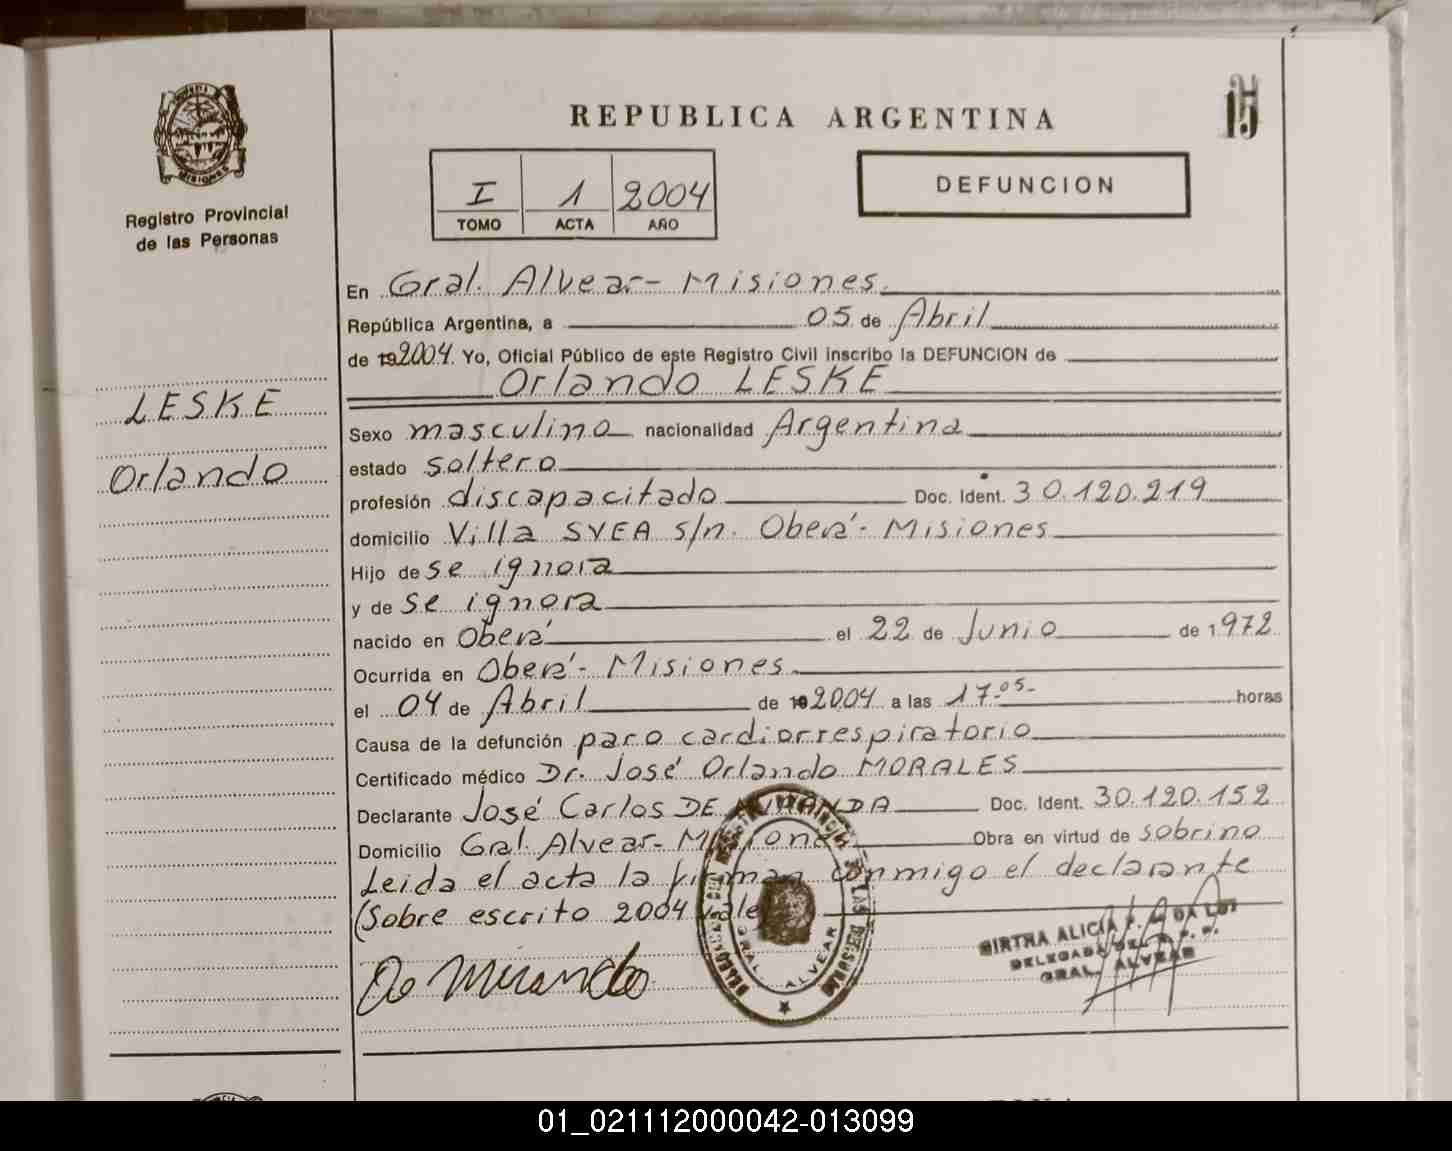 REPUBLICA ARGENTINA
MISIONES
Registro Provincial
de las Personas
I 1 2004
TOMO ACTA AÑO
DEFUNCION
LESKE
Orlando
En Gral. Alvear - Misiones.
República Argentina, a 05 de Abril
de 192004. Yo, Oficial Público de este Registro Civil inscribo la DEFUNCION de
Orlando LESKE
Sexo masculino nacionalidad Argentina
estado soltero
profesión discapacitado Doc. Ident. 30.120.219
domicilio Villa SVEA s/n. Oberá - Misiones
Hijo de se ignora
y de se ignora
nacido en Oberá el 22 de Junio de 1972
Ocurrida en Oberá - Misiones.
el 04 de Abril de 192004 a las 17-05- horas
Causa de la defunción paro cardiorrespiratorio
Certificado médico Dr. José Orlando MORALES
Declarante José Carlos DE MIRANDA Doc. Ident. 30.120.152
Domicilio Gral. Alvear - Misiones Obra en virtud de sobrino
Leida el acta la firman conmigo el declarante
(Sobre escrito 2004 vale
De Miranda
GRAL. ALVEAR
MIRTHA ALICIA DA LUZ
DELEGADA DEL R. P. P.
GRAL. ALVEAR
01_021112000042-013099